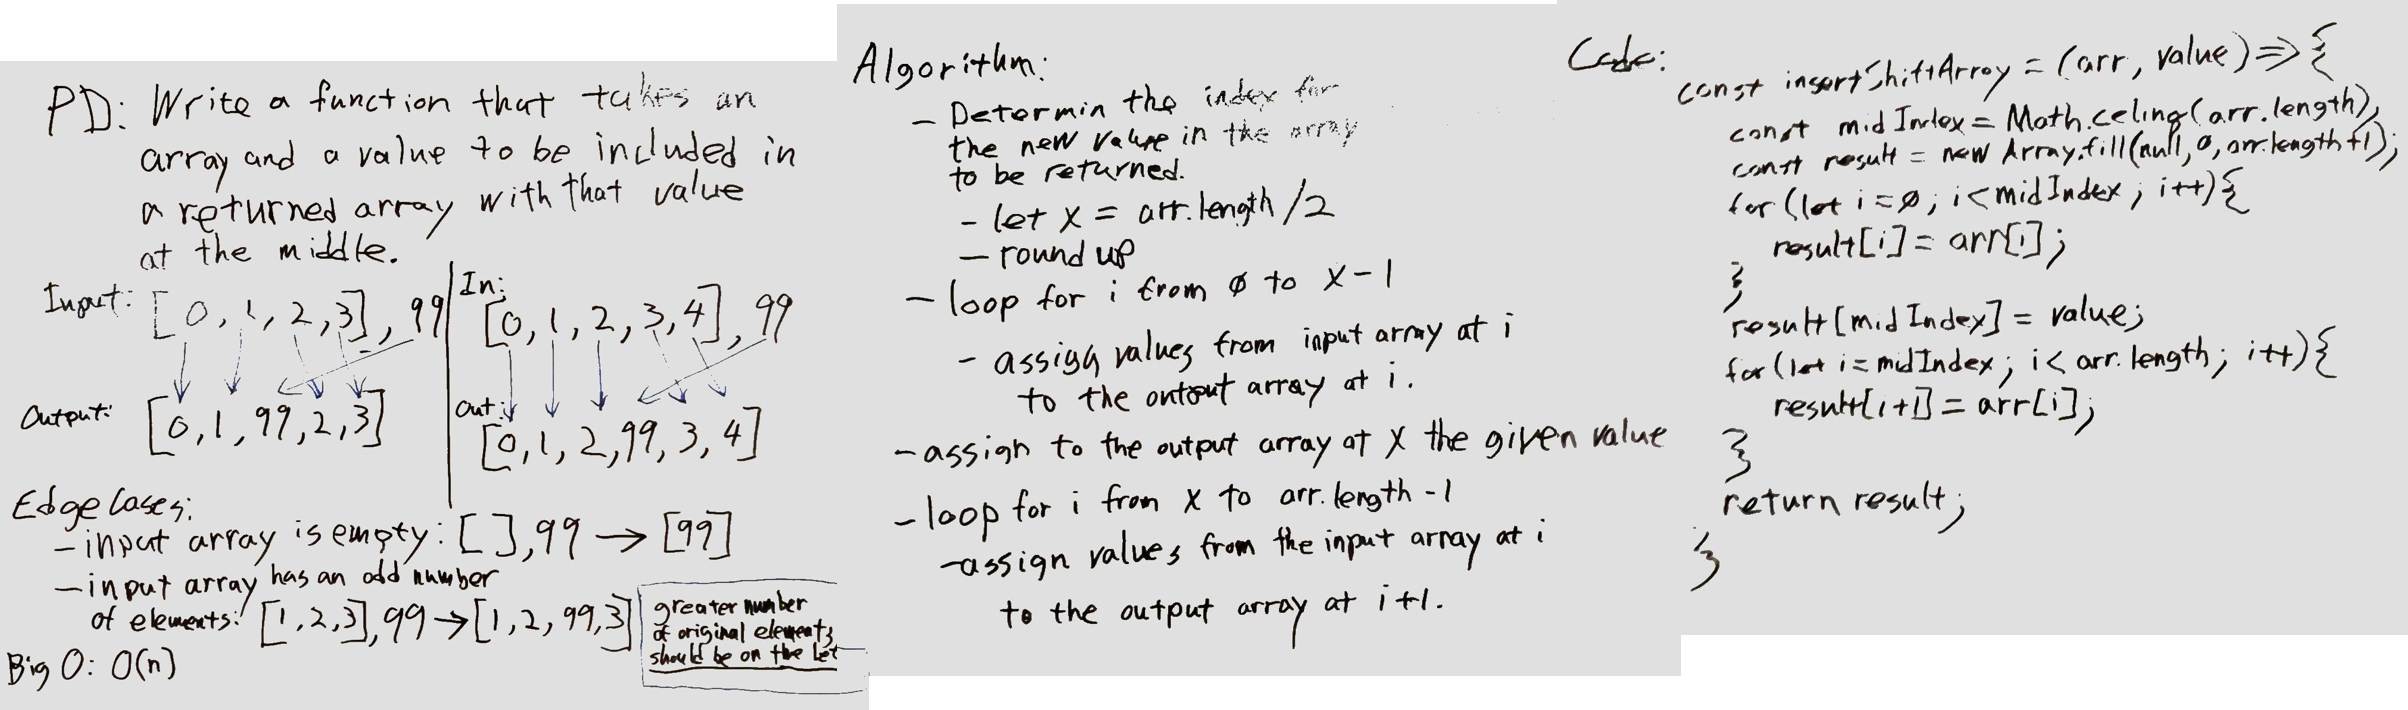 PD: Write a function that takes an
array and a value to be included in
a returned array with that value
at the middle.
Input: [0, 1, 2, 3], 99
Output: [0, 1, 99, 2, 3]
In: [0, 1, 2, 3, 4], 99
Out: [0, 1, 2, 99, 3, 4]
Edge Cases:
- input array is empty: [ ], 99 → [99]
- input array has an odd number
of elements: [1, 2, 3], 99 → [1, 2, 99, 3]
greater number
of original elements
should be on the let
Big O: O(n)
Algorithm:
- Determin the index for
the new value in the array
to be returned.
- let x = arr.length/2
- round up
- loop for i from ø to x-1
- assign values from input array at i
to the output array at i.
- assign to the output array at x the given value
- loop for i from x to arr.length-1
- assign values from the input array at i
to the output array at i+1.
Code:
const insertShiftArray = (arr, value) => {
const midIndex = Math.celing(arr.length);
const result = new Array.fill(null, 0, arr.length+1);
for (let i = ø; i < midIndex; i++) {
result[i] = arr[i];
}
result[midIndex] = value;
for (let i = midIndex; i < arr.length; i++) {
result[i+1] = arr[i];
}
return result;
}